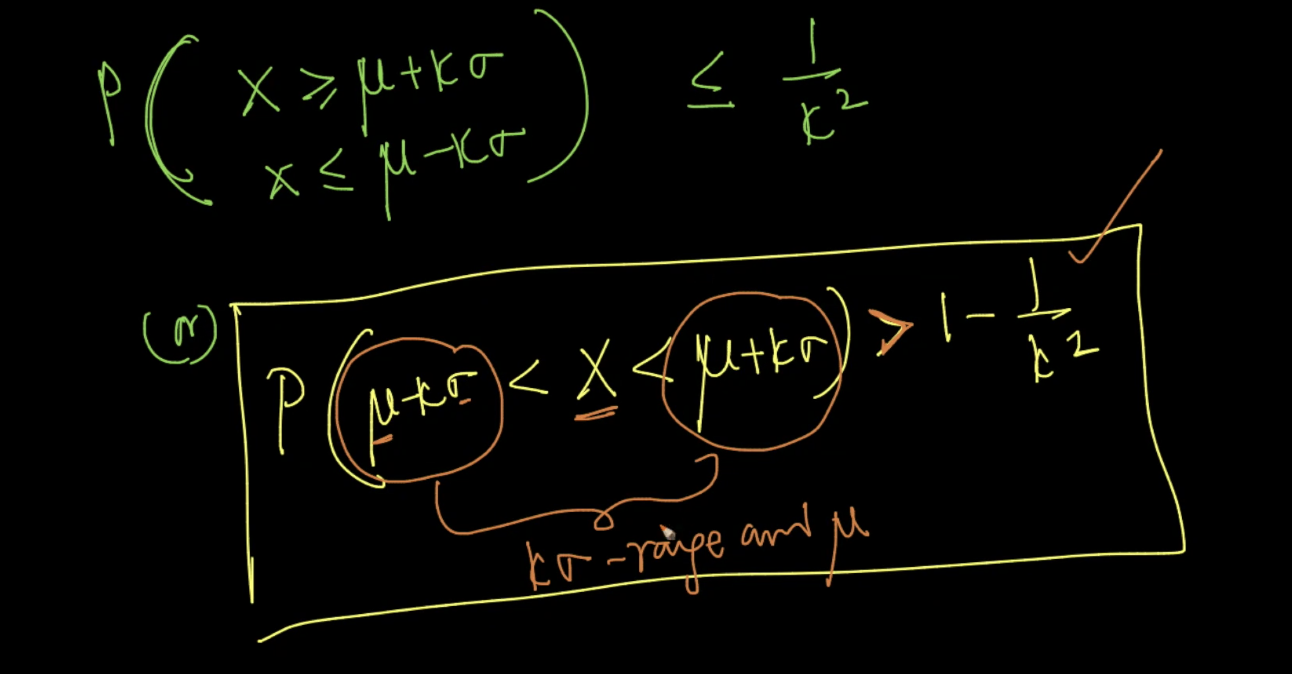 P( X ≥ μ+kσ
x ≤ μ-kσ ) ≤ 1/k²
(or)
P( μ-kσ < X < μ+kσ ) > 1 - 1/k²
kσ-range and μ